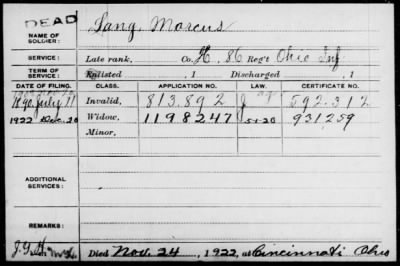 DEAD
NAME OF SOLDIER: Lang, Marcus
SERVICE: Late rank, Co. H, 86 Reg't Ohio Inf
TERM OF SERVICE: Enlisted , 1 Discharged , 1
DATE OF FILING. CLASS. APPLICATION NO. LAW. CERTIFICATE NO.
July 11 Invalid, 813.892 592.312
1922 Dec. 20 Widow, 1198247 5-1-20 931259
Minor,
ADDITIONAL SERVICES:
REMARKS:
Died Nov. 24, 1922, at Cincinnati Ohio